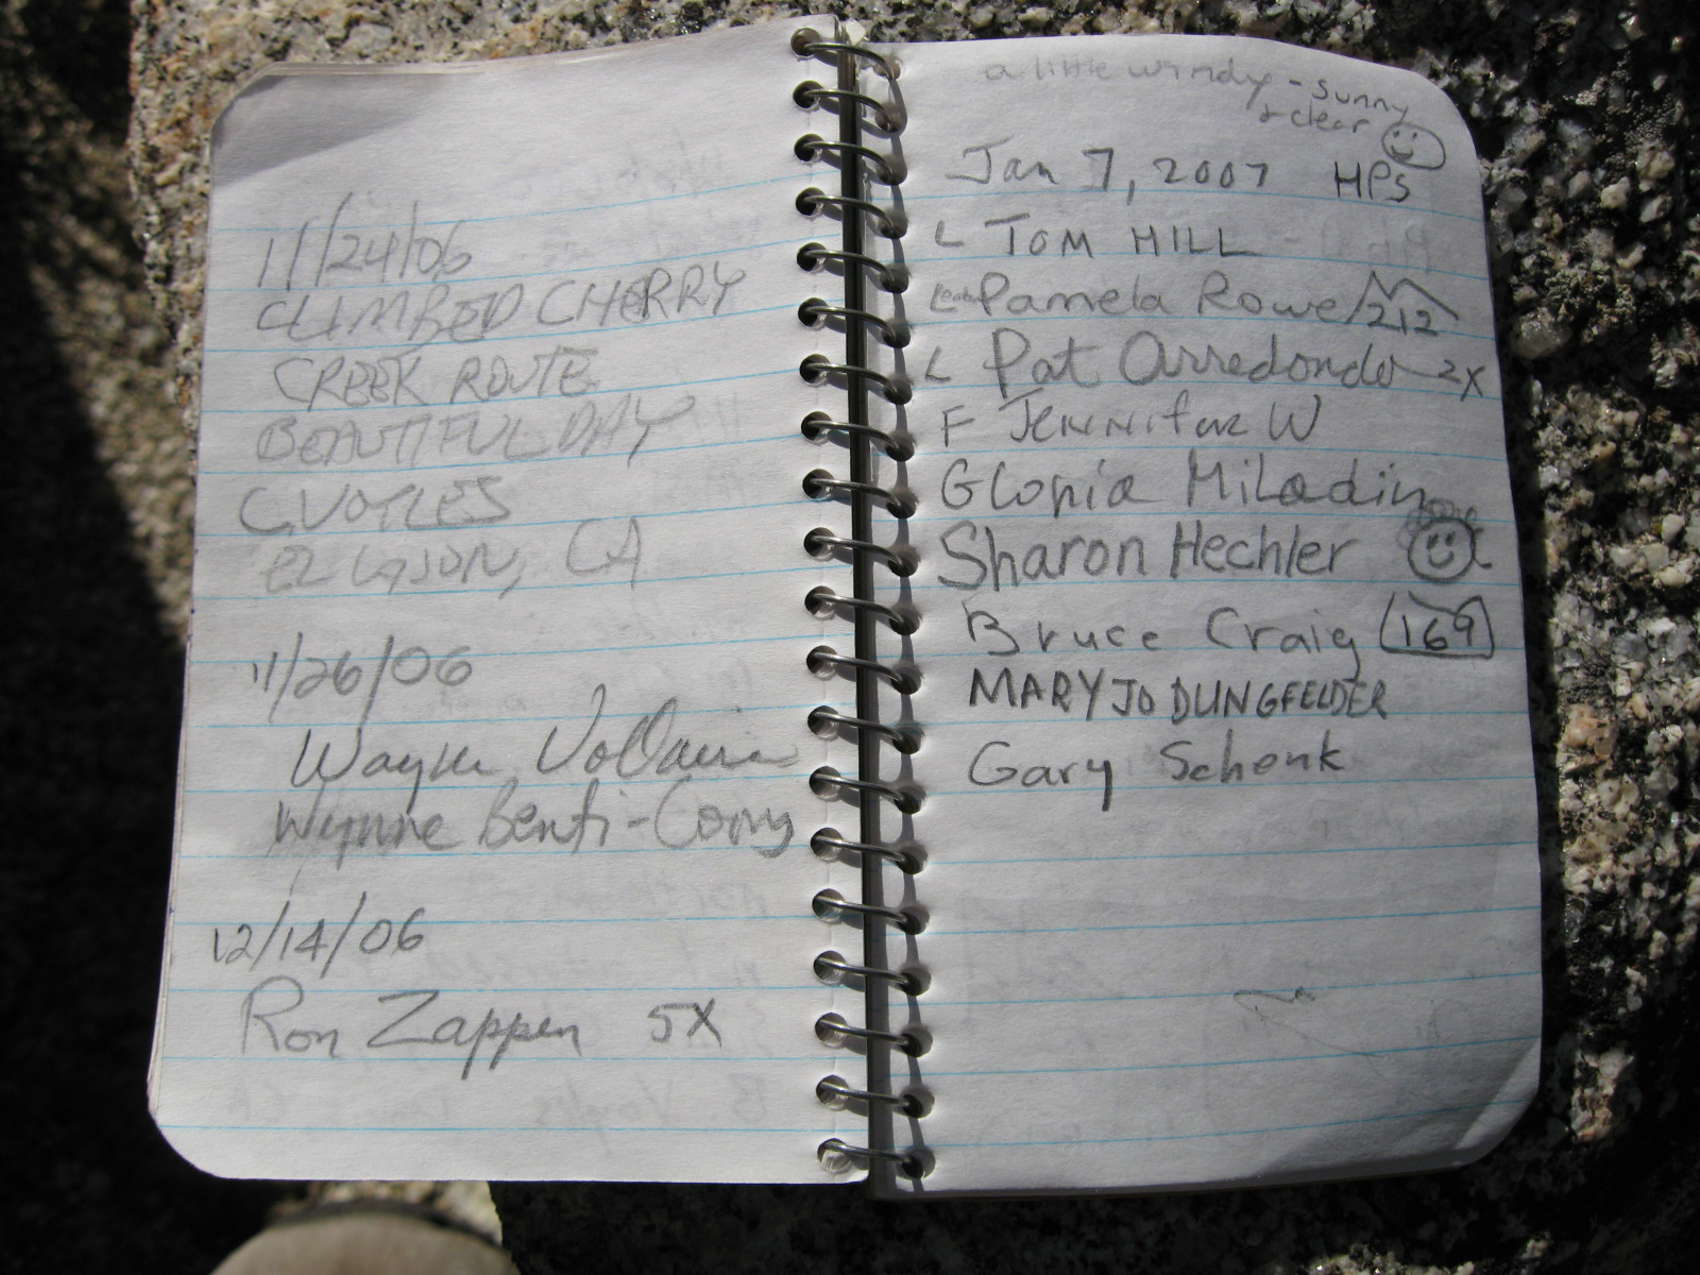 11/24/06
CLIMBED CHERRY
CREEK ROUTE
BEAUTIFUL DAY
C. VOYLES
EL CAJON, CA
11/26/06
Wayne
Wynne Benti-
12/14/06
Ron Zappen 5X
a little windy - sunny
& clear
Jan 7, 2007 HPS
L TOM HILL
Pamela Rowe 212
L Pat Arredondo 2X
F JENNIFER W
Gloria Miladin
Sharon Hechler
Bruce Craig 169
MARY JO DUNGFELDER
Gary Schenk